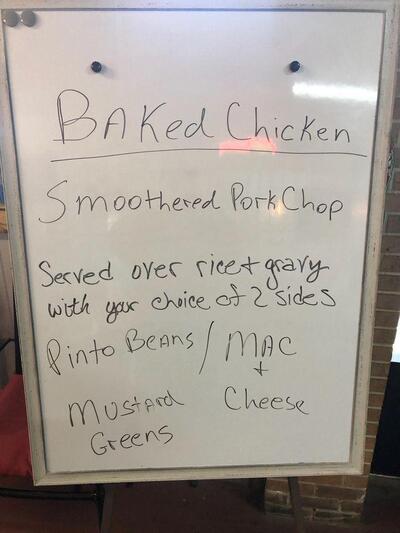 BAKed Chicken
Smoothered Pork Chop
Served over rice + gravy
with your choice of 2 sides
Pinto Beans / MAC
+
Cheese
Mustard
Greens